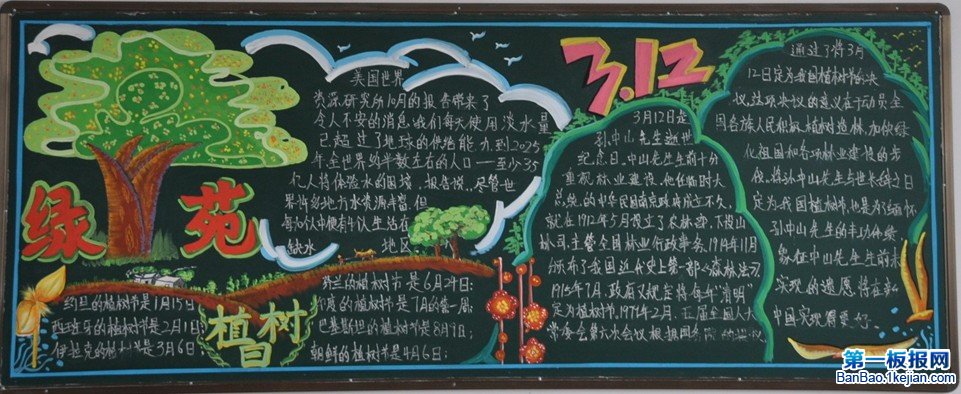 绿苑
美国世界
资源研究所10月的报告带来了
令人不安的消息:我们每天使用淡水量
已超过了地球的供给能力,到2025
年全世界约半数左右的人口——至少35
亿人将体验水的困境,报告说,尽管世
界许多地方水资源丰富,但
每 人中便有 人生活在
缺水 地区
约旦的植树节是1月15日
西班牙的植树节是2月1日;
伊拉克的植树节是3月6日;
植树日
的植树节是6月24日;
印度的植树节是7月的第一周;
巴基斯坦的植树节是8月9日;
朝鲜的植树节是4月6日;
3.12
3月12日是
孙中山先生逝世
纪念日,中山先生生前十分
重视林业建设。他任临时大
总统的中华民国南京政府成立不久,
就在1912年5月设立了农林部,下设山
林司,主管全国林业行政事务,1914年11月
颁布了我国近代史上第一部《森林法》,
1915年7月,政府又规定将每年"清明"
定为植树节,1979年2月,五届全国人大
常委会第六次会议根据国务院的提议
通过了将3月
12日定为我国植树节的决
议,这项决议的意义在于动员全
国各族人民积极植树造林,加快绿
化祖国和各项林业建设的步
伐,将孙中山先生与世长辞之日
定为我国植树节,也是为了缅怀
孙中山先生的丰功伟绩
象征中山先生生前未
实现的遗愿将在新
中国实现得更好
第一板报网
BanBao.1kejian.com